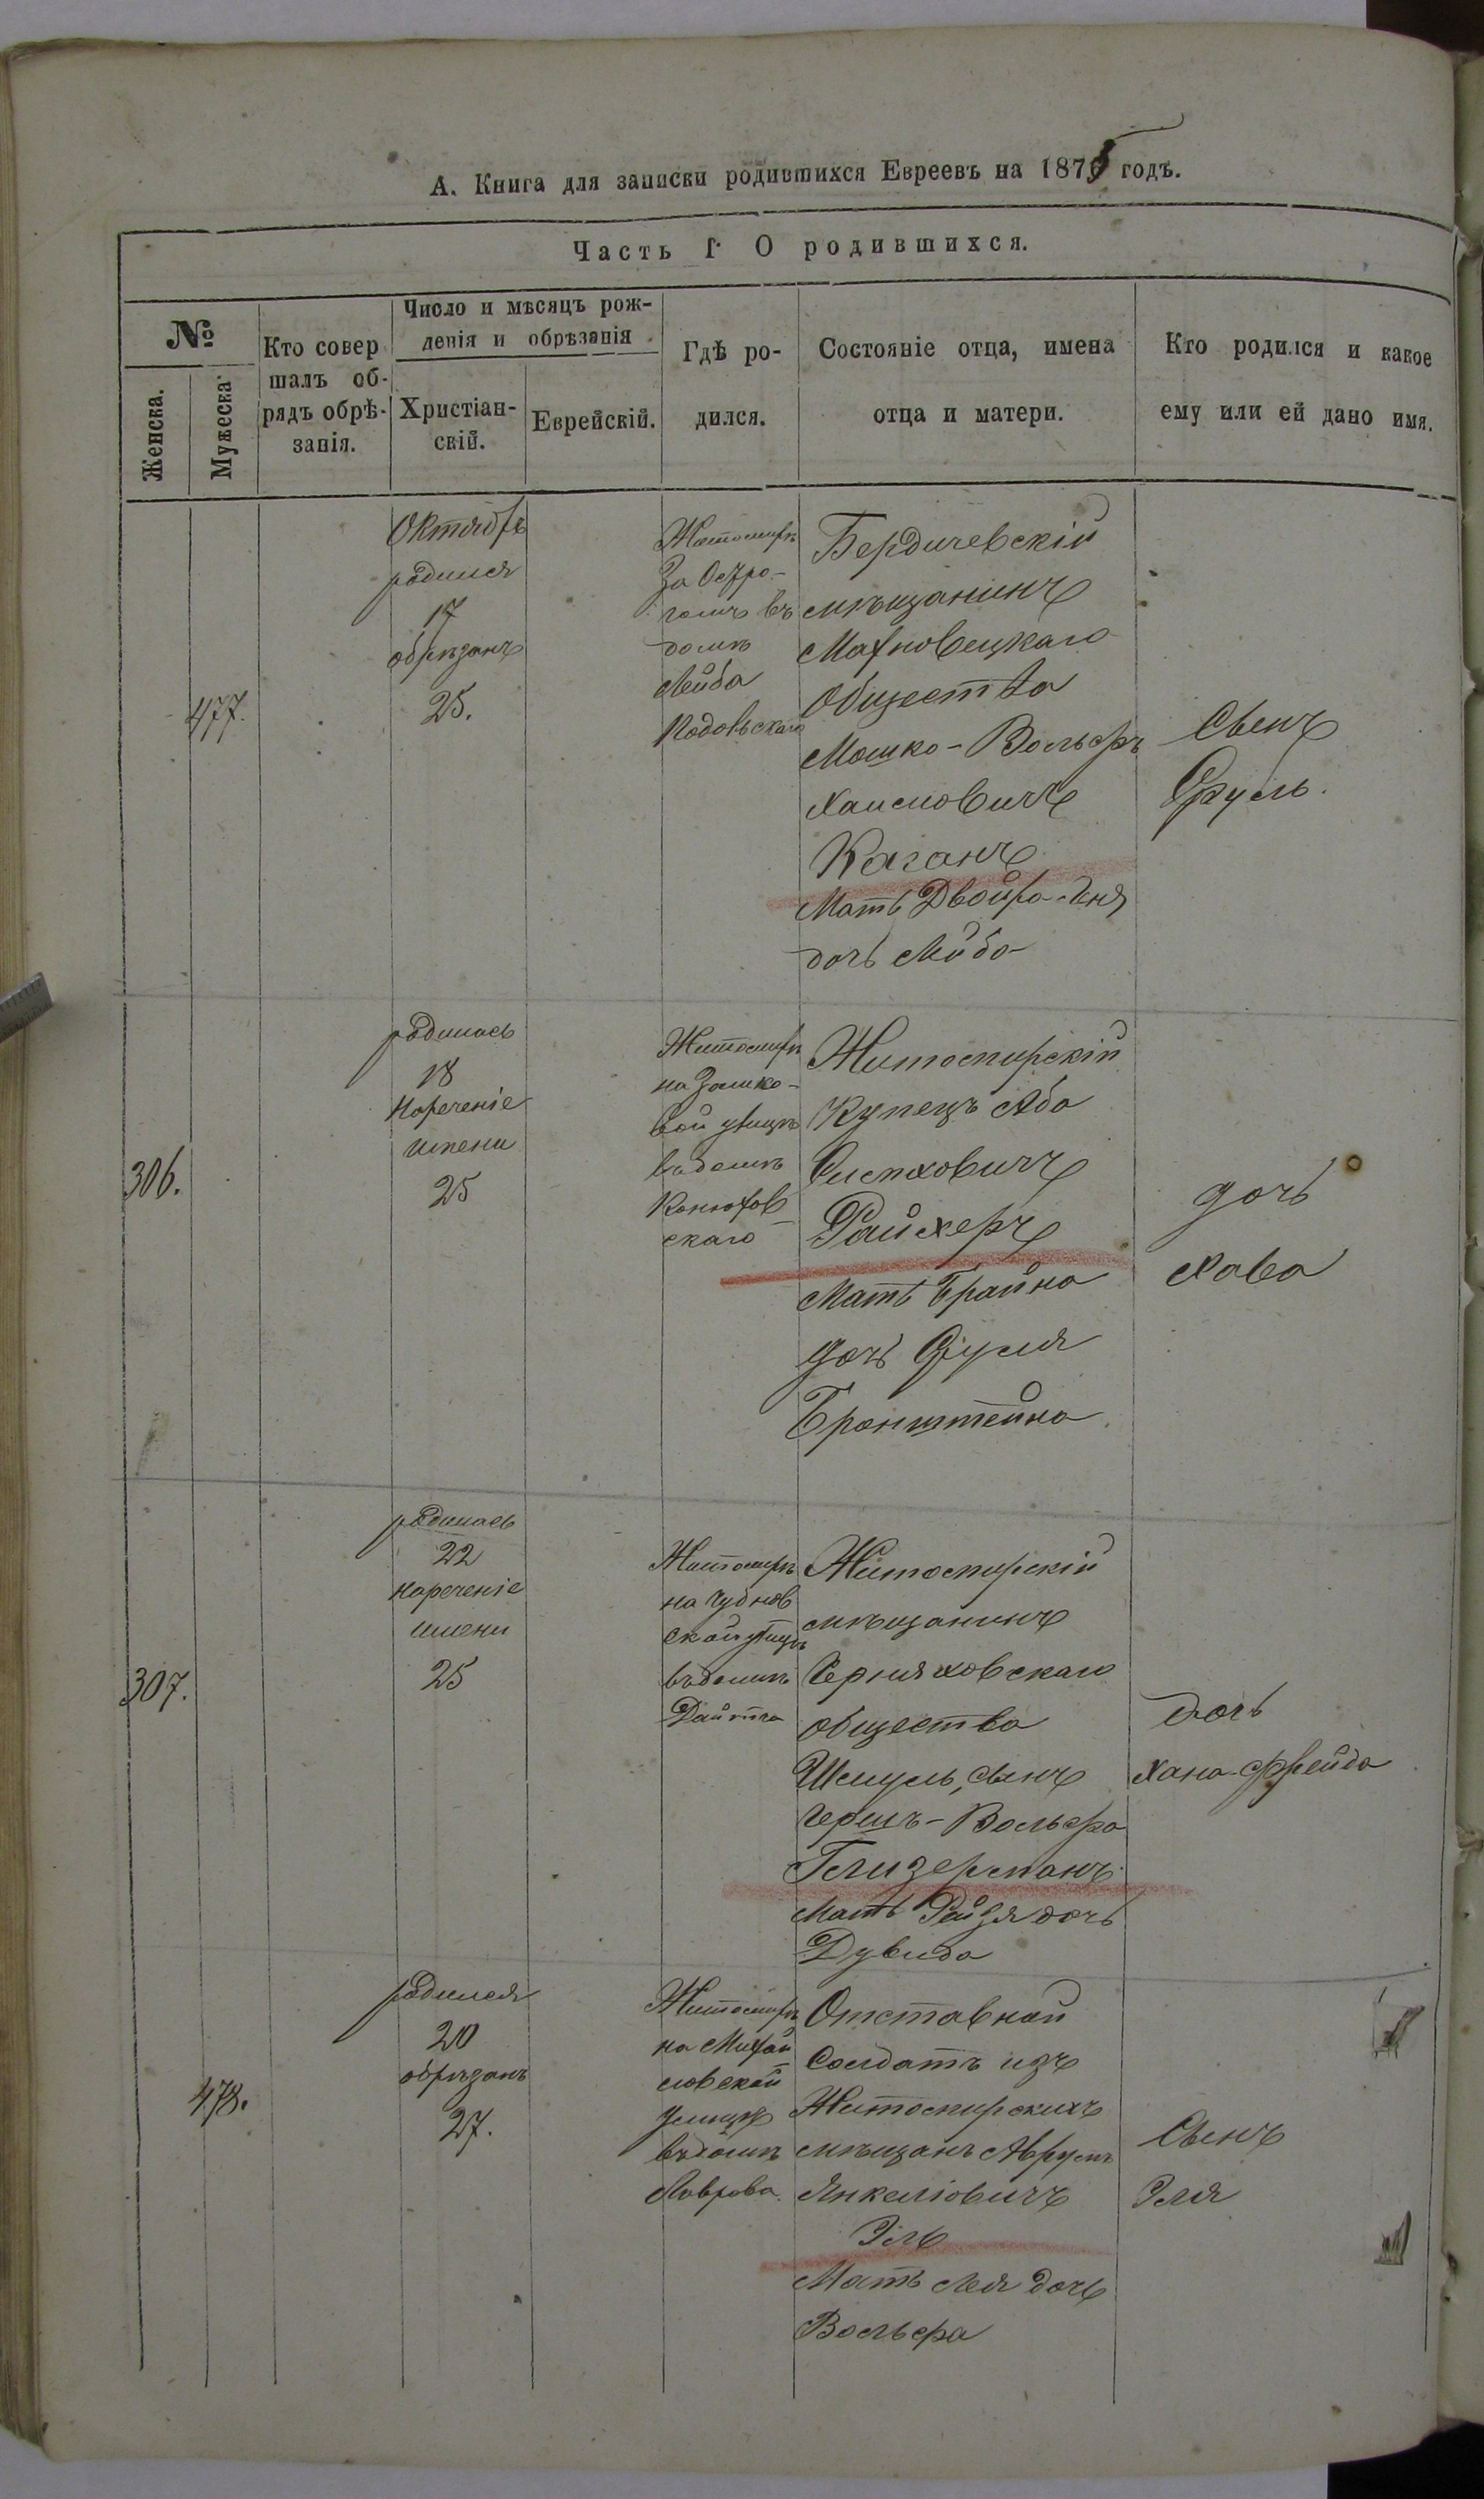 А. Книга для записки родившихся Евреевъ на 1875 годъ.
Часть I О родившихся.
№
Женска.
Мужеска
Кто совер
шалъ об-
рядъ обрѣ-
занія.
Число и мѣсяцъ рож-
денія и обрѣзанія
Христіан-
скій.
Еврейскій.
Гдѣ ро-
дился.
Состояніе отца, имена
отца и матери.
Кто родился и какое
ему или ей дано имя.
477.
Октябрь
родился
17
обрѣзанъ
25.
Житомиръ
За Остро-
гомъ въ
домѣ
Лейба
Бердичевскій
мѣщанинъ
Махновецкаго
Общества
Мошко-Вольфъ
Хаимовичъ
Каганъ
Мать Двойра-Еня
дочь Лейба
Сынъ
Сруль.
306.
родилась
18
Нареченіе
имени
25
Житомиръ
на Замко-
вой улицѣ
въ домѣ
Конюхов
скаго
Житомирскій
Купецъ Аба
Симховичъ
Райхеръ
Мать Брайна
дочь Сруля
Бронштейна
дочь
Хава
307.
родилась
22
нареченіе
имени
25
Житомиръ
на Чуднов
ской улицѣ
въ домѣ
Житомирскій
мѣщанинъ
Черняховскаго
общества
Шмуль, сынъ
Гершъ-Вольфа
Глизерманъ
Мать Рейзя дочь
Дувида
дочь
Хана-Фрейда
478.
родился
20
обрѣзанъ
27.
Житомиръ
на Михай
ловской
улицѣ
въ домѣ
Лаврова.
Отставной
Солдатъ изъ
Житомирскихъ
мѣщанъ Аврумъ
Янкеліовичъ
Эль
Мать Лея дочь
Вольфа
Сынъ
Эля